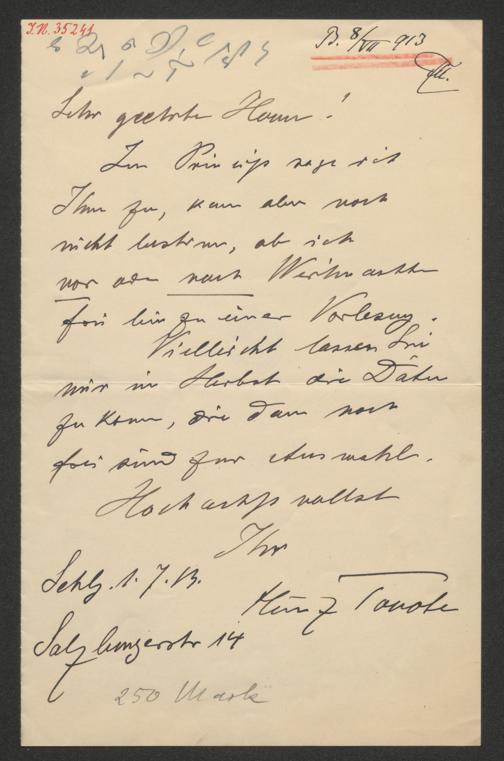 I.N. 35241
B. 8/VII 913
Sehr geehrter Herr!
Im Princip sage ich
Ihnen zu, kann aber noch
nicht bestimmen, ob ich
vor oder nach Weihnachten
frei bin zu einer Vorlesung.
Vielleicht lassen Sie
mir im Herbst die Daten
zukommen, die dann noch
frei sind zur Auswahl.
Hochachtgsvollst
Ihr
Heinz Tovote
Schbg. 1.7.13.
Salzburgerstr 14
250 Mark